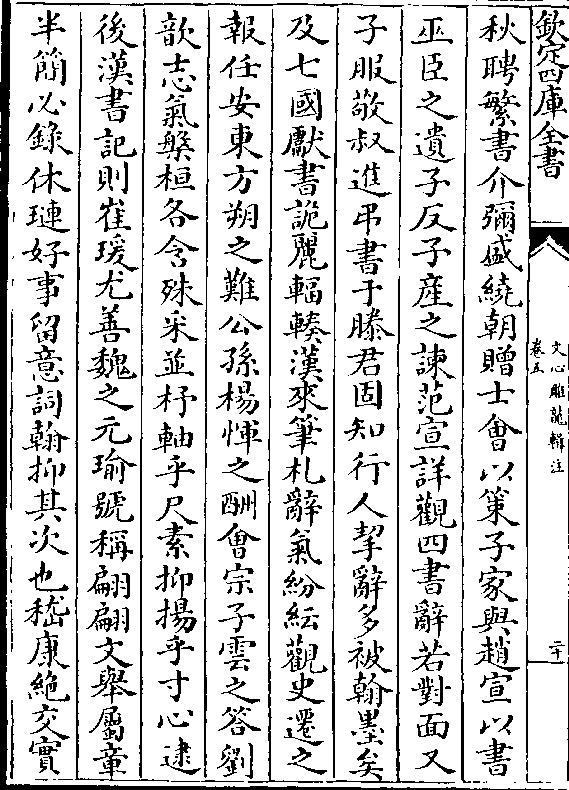 欽定四庫全書
文心雕龍輯注
卷五
二十
秋聘繁書介彌盛繞朝贈士會以策子家與趙宣以書
巫臣之遺子反子產之諫范宣詳觀四書辭若對面又
子服敬叔進弔書于滕君固知行人挈辭多被翰墨矣
及七國獻書詭麗輻輳漢來筆札辭氣紛紜觀史遷之
報任安東方朔之難公孫楊惲之酬會宗子雲之答劉
歆志氣槃桓各含殊采並杼軸乎尺素抑揚乎寸心逮
後漢書記則崔瑗尤善魏之元瑜號稱翩翩文舉屬章
半簡必錄休璉好事留意詞翰抑其次也嵇康絶交實